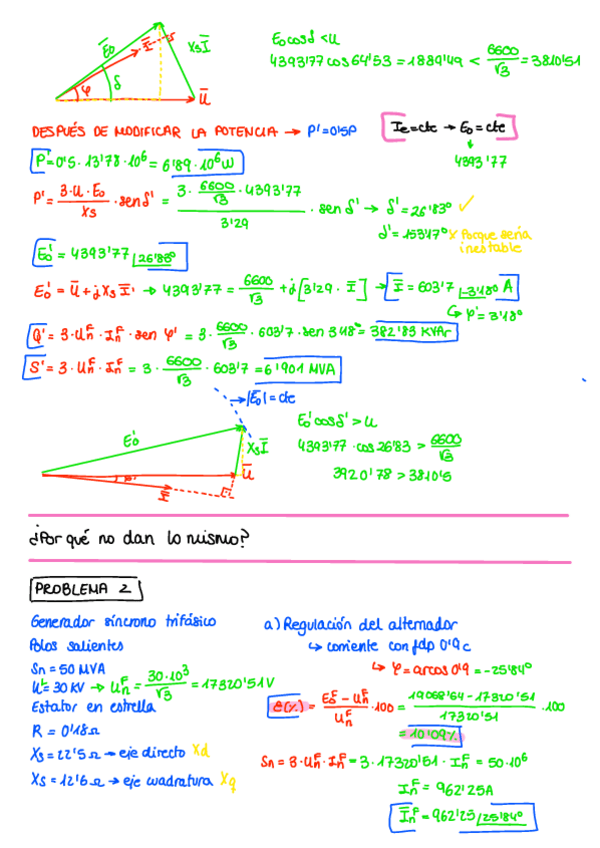 E̅₀ I̅ XsI̅
φ δ U̅
E₀cosδ < U
4393'77 cos 64'53 = 1889'49 < 6600/√3 = 3810'51
DESPUÉS DE MODIFICAR LA POTENCIA → P'=0'5P
Ie=cte → E₀=cte
4393'77
P'=0'5 · 13'78 · 10⁶ = 6'89 · 10⁶ W
P' = 3·U·E₀/Xs · sen δ' = 3 · 6600/√3 · 4393'77 / 3'29 · sen δ' → δ' = 26'83º ✓
δ' = 153'17º x Porque sería inestable
E₀' = 4393'77 ∠26'83º
E₀' = U̅ + jXs I̅' → 4393'77 = 6600/√3 + j[3'29 · I̅] → I̅ = 603'7 ∠-3'18º A
↳ φ' = 3'18º
Q' = 3·Uₙᶠ·Iₙᶠ·sen φ' = 3 · 6600/√3 · 603'7 · sen 3'18º = 382'83 KVAr
S' = 3·Uₙᶠ·Iₙᶠ = 3 · 6600/√3 · 603'7 = 6'901 MVA
→ |E̅₀| = cte
E₀' XsI̅
φ' U̅
I̅
E₀'cosδ' > U
4393'77 · cos 26'83 > 6600/√3
3920'78 > 3810'5
¿Por qué no dan lo mismo?
PROBLEMA 2
Generador síncrono trifásico
Polos salientes
Sn = 50 MVA
Uᴸ = 30 KV → Uₙᶠ = 30·10³/√3 = 17320'51V
Estator en estrella
R = 0'18Ω
Xs = 22'5Ω → eje directo Xd
Xs = 12'6Ω → eje cuadratura Xq
a) Regulación del alternador
↳ corriente con fdp 0'9c
↳ φ = arcos 0'9 = -25'84º
ε(%) = E₀ᶠ - Uₙᶠ / Uₙᶠ · 100 = 19068'64 - 17320'51 / 17320'51 · 100
= 10'09%
Sn = 3·Uₙᶠ·Iₙᶠ = 3 · 17320'51 · Iₙᶠ = 50·10⁶
Iₙᶠ = 962'25A
I̅ₙᶠ = 962'25 ∠25'84º